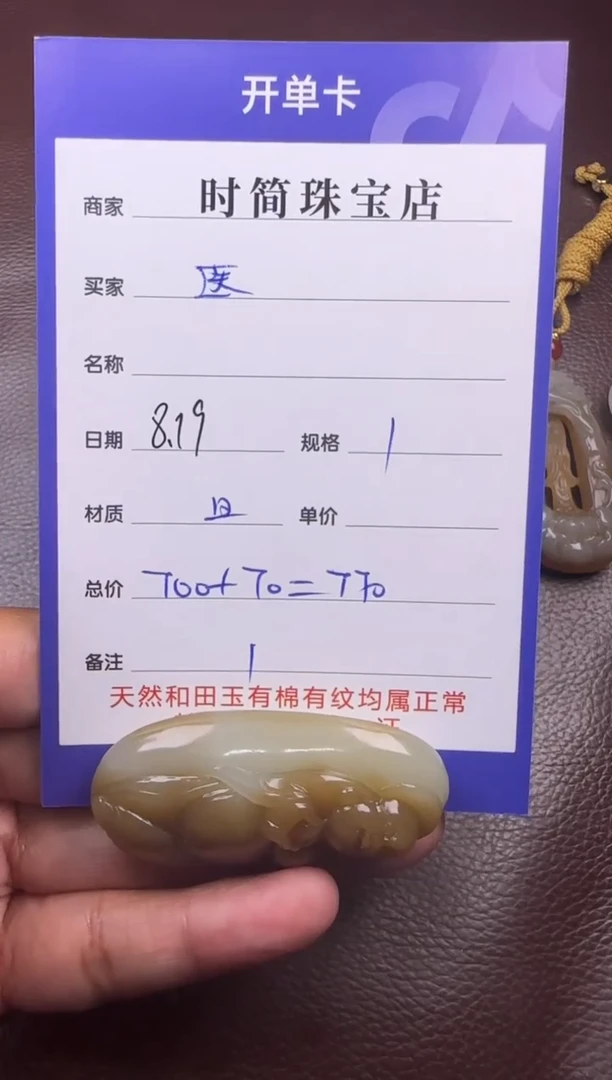 开单卡
商家 时简珠宝店
买家 医
名称
日期 8.19 规格 1
材质 单价
总价 700+70=770
备注 1
天然和田玉有棉有纹均属正常
证